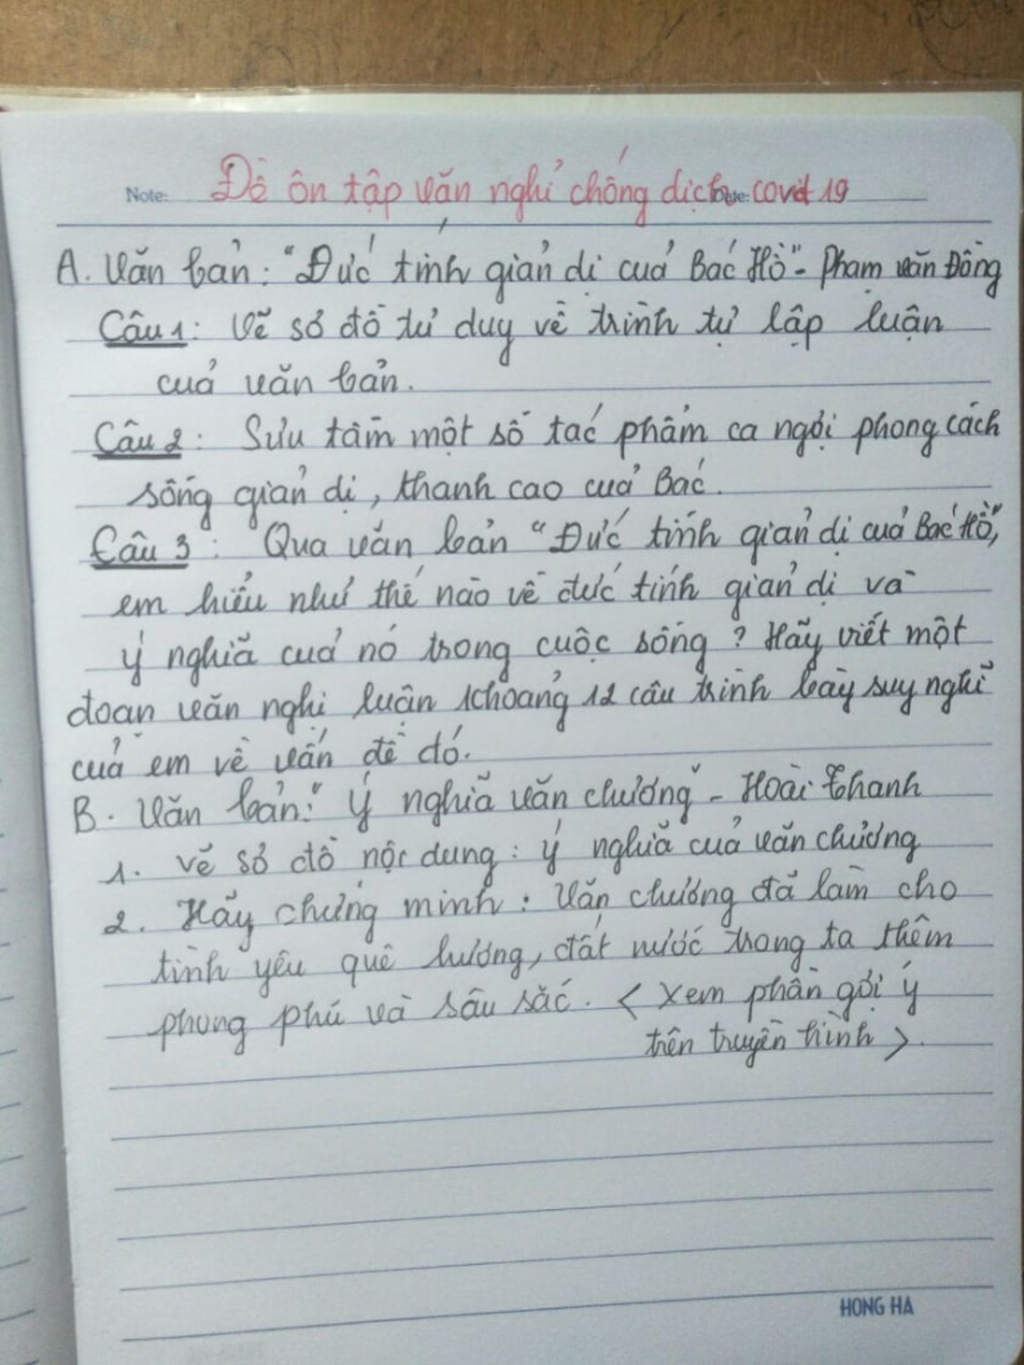 Note: Đề ôn tập văn nghỉ chống dịch Date: covid 19
A. Văn bản: "Đức tính giản dị của Bác Hồ" - Phạm Văn Đồng
Câu 1: Vẽ sơ đồ tư duy về trình tự lập luận
của văn bản.
Câu 2: Sưu tầm một số tác phẩm ca ngợi phong cách
sống giản dị, thanh cao của Bác.
Câu 3: Qua văn bản "Đức tính giản dị của Bác Hồ",
em hiểu như thế nào về đức tính giản dị và
ý nghĩa của nó trong cuộc sống? Hãy viết một
đoạn văn nghị luận khoảng 12 câu trình bày suy nghĩ
của em về vấn đề đó.
B. Văn bản: "Ý nghĩa văn chương" - Hoài Thanh
1. Vẽ sơ đồ nội dung: ý nghĩa của văn chương
2. Hãy chứng minh: Văn chương đã làm cho
tình yêu quê hương, đất nước trong ta thêm
phong phú và sâu sắc. < Xem phần gợi ý
trên truyền hình >.
HONG HA